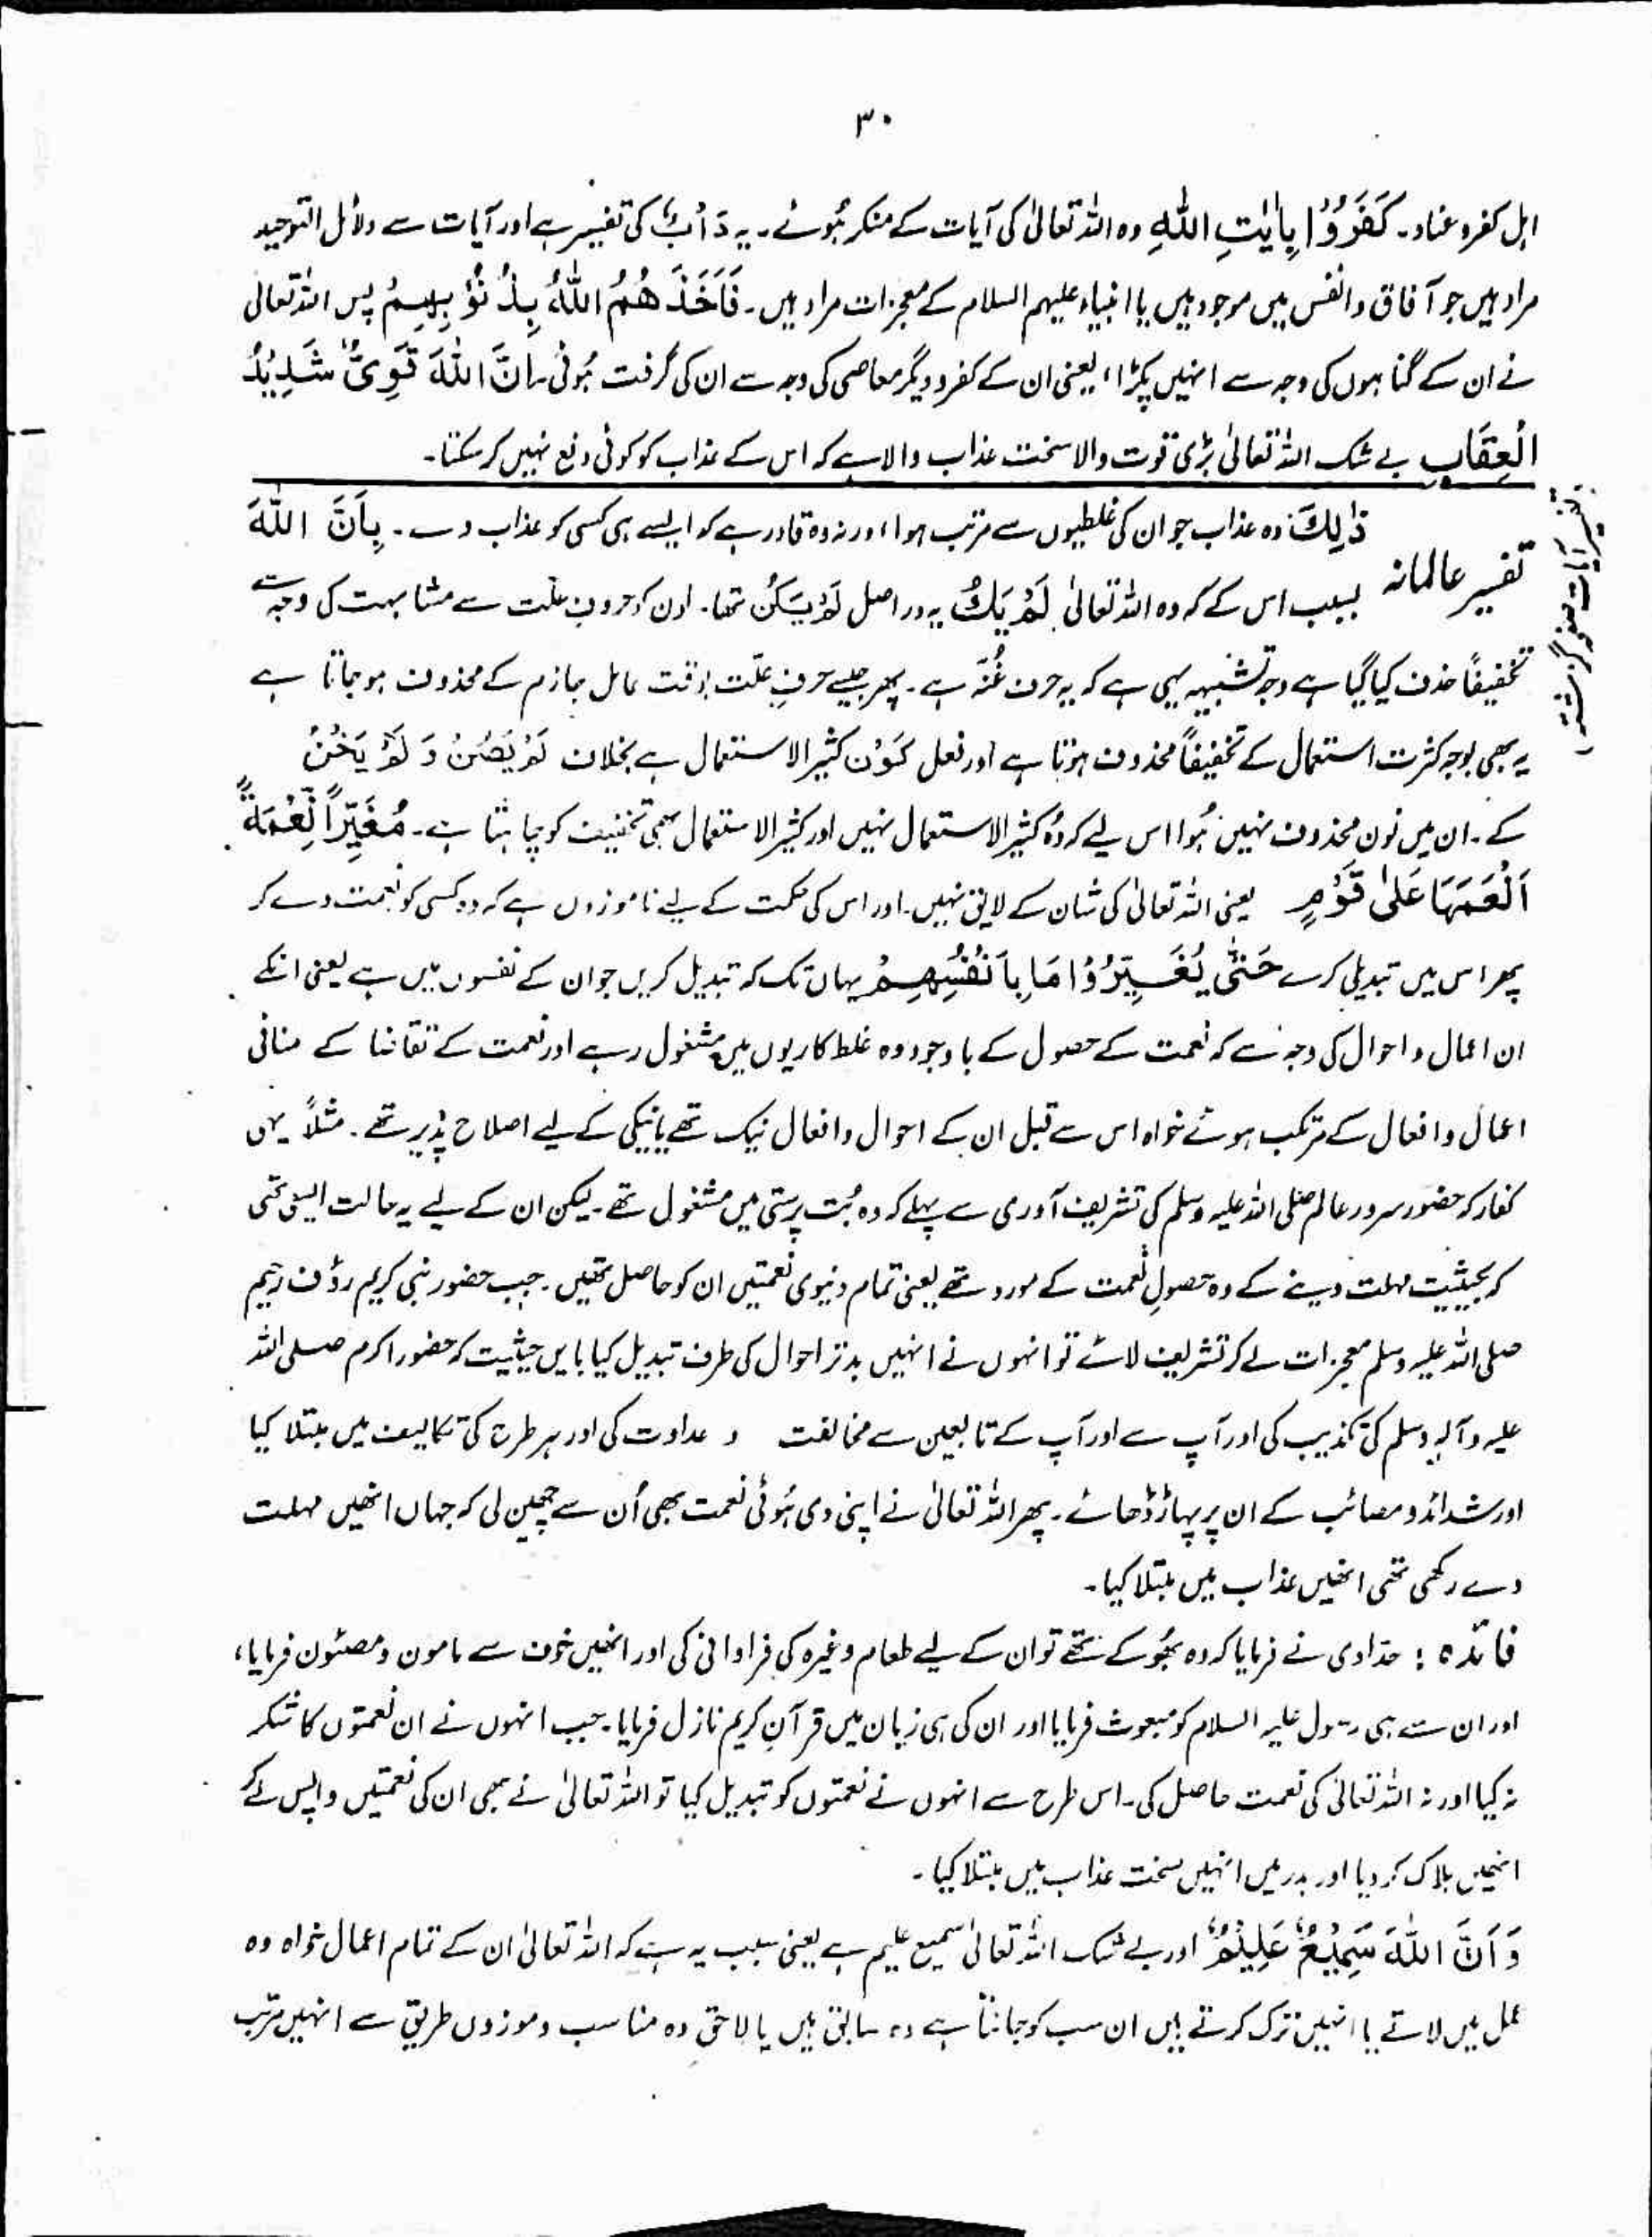 ۳۰
اہل کفر و عناد۔ كَفَرُوْا بِاٰيٰتِ اللّٰهِ وہ اللہ تعالیٰ کی آیات کے منکر ہُوئے۔ یہ دَأْبٌ کی تفسیر ہے اور آیات سے دلائل التوحید
مراد ہیں جو آفاق و انفس میں موجود ہیں یا انبیاء علیہم السلام کے معجزات مراد ہیں۔ فَاَخَذَهُمُ اللّٰهُ بِذُنُوْبِهِمْ پس اللہ تعالیٰ
نے ان کے گناہوں کی وجہ سے انہیں پکڑا، یعنی ان کے کفر و دیگر معاصی کی وجہ سے ان کی گرفت ہُوئی۔ اِنَّ اللّٰهَ قَوِيٌّ شَدِيْدُ
الْعِقَابِ بے شک اللہ تعالیٰ بڑی قوت والا سخت عذاب والا ہے کہ اس کے عذاب کو کوئی دفع نہیں کر سکتا۔
تفسیر آیات صفحہ گزشتہ
تفسیر عالمانہ
ذٰلِكَ: وہ عذاب جو ان کی غلطیوں سے مرتب ہوا، ورنہ وہ قادر ہے کہ ایسے ہی کسی کو عذاب دے۔ بِاَنَّ اللّٰهَ
بسبب اس کے کہ وہ اللہ تعالیٰ لَمْ يَكُ یہ در اصل لَمْ يَكُنْ تھا۔ اون کو حروفِ علت سے مشابہت کی وجہ سے
تخفیفاً حذف کیا گیا ہے وجہ تشبیہہ یہی ہے کہ یہ حرف غُنّہ ہے۔ پھر جیسے حرفِ علّت بوقت عامل جازم کے محذوف ہو جاتا ہے
یہ بھی بوجہ کثرت استعمال کے تخفیفاً محذوف ہوتا ہے اور فعل کَوْن کثیر الاستعمال ہے بخلاف لَمْ يَصُنْ وَ لَمْ يَخُنْ
کے۔ ان میں نون محذوف نہیں ہُوا اس لیے کہ وُہ کثیر الاستعمال نہیں اور کثیر الاستعمال بھی تخفیف کو چاہتا ہے۔ مُغَيِّرًا نِّعْمَةً
اَنْعَمَهَا عَلٰى قَوْمٍ یعنی اللہ تعالیٰ کی شان کے لایق نہیں۔ اور اس کی حکمت کے لیے ناموزوں ہے کہ وہ کسی کو نعمت دے کر
پھر اس میں تبدیلی کرے حَتّٰى يُغَيِّرُوْا مَا بِاَنْفُسِهِمْ یہاں تک کہ تبدیل کریں جو ان کے نفسوں میں ہے یعنی انکے
ان اعمال و احوال کی وجہ سے کہ نعمت کے حصول کے باوجود وہ غلط کاریوں میں مشغول رہے اور نعمت کے تقاضا کے منافی
اعمال و افعال کے مرتکب ہوئے خواہ اس سے قبل ان کے احوال و افعال نیک تھے یا نیکی کے لیے اصلاح پذیر تھے۔ مثلاً یہی
کفار کہ حضور سرور عالم صلی اللہ علیہ وسلم کی تشریف آوری سے پہلے کہ وہ بُت پرستی میں مشغول تھے۔ لیکن ان کے لیے یہ حالت ایسی تھی
کہ بحیثیت مہلت دینے کے وہ حصولِ نعمت کے مورد تھے یعنی تمام دنیوی نعمتیں ان کو حاصل تھیں۔ جب حضور نبی کریم رؤف رحیم
صلی اللہ علیہ وسلم معجزات لے کر تشریف لائے تو انہوں نے انہیں بدتر احوال کی طرف تبدیل کیا بایں حیثیت کہ حضور اکرم صلی اللہ
علیہ وآلہٖ وسلم کی تکذیب کی اور آپ سے اور آپ کے تابعین سے مخالفت و عداوت کی اور ہر طرح کی تکالیف میں مبتلا کیا
اور شدائد و مصائب کے ان پر پہاڑ ڈھائے۔ پھر اللہ تعالیٰ نے اپنی دی ہُوئی نعمت بھی اُن سے چھین لی کہ جہاں انھیں مہلت
دے رکھی تھی انھیں عذاب میں مبتلا کیا۔
فائدہ : حدادی نے فرمایا کہ وہ بھُوکے تھے تو ان کے لیے طعام وغیرہ کی فراوانی کی اور انھیں خوف سے مامون و مصئون فرمایا،
اور ان سے ہی رسول علیہ السلام کو مبعوث فرمایا اور ان کی ہی زبان میں قرآن کریم نازل فرمایا۔ جب انہوں نے ان نعمتوں کا شکر
نہ کیا اور نہ اللہ تعالیٰ کی نعمت حاصل کی۔ اس طرح سے انہوں نے نعمتوں کو تبدیل کیا تو اللہ تعالیٰ نے بھی ان کی نعمتیں واپس لے کر
انھیں ہلاک کر دیا اور بدر میں انہیں سخت عذاب میں مبتلا کیا۔
وَ اَنَّ اللّٰهَ سَمِيْعٌ عَلِيْمٌ اور بے شک اللہ تعالیٰ سمیع علیم ہے یعنی سبب یہ ہے کہ اللہ تعالیٰ ان کے تمام اعمال خواہ وہ
عمل میں لاتے یا انہیں ترک کرتے ہیں ان سب کو جانتا ہے وہ سابق ہیں یا لاحق وہ مناسب و موزوں طریق سے انہیں مرتب